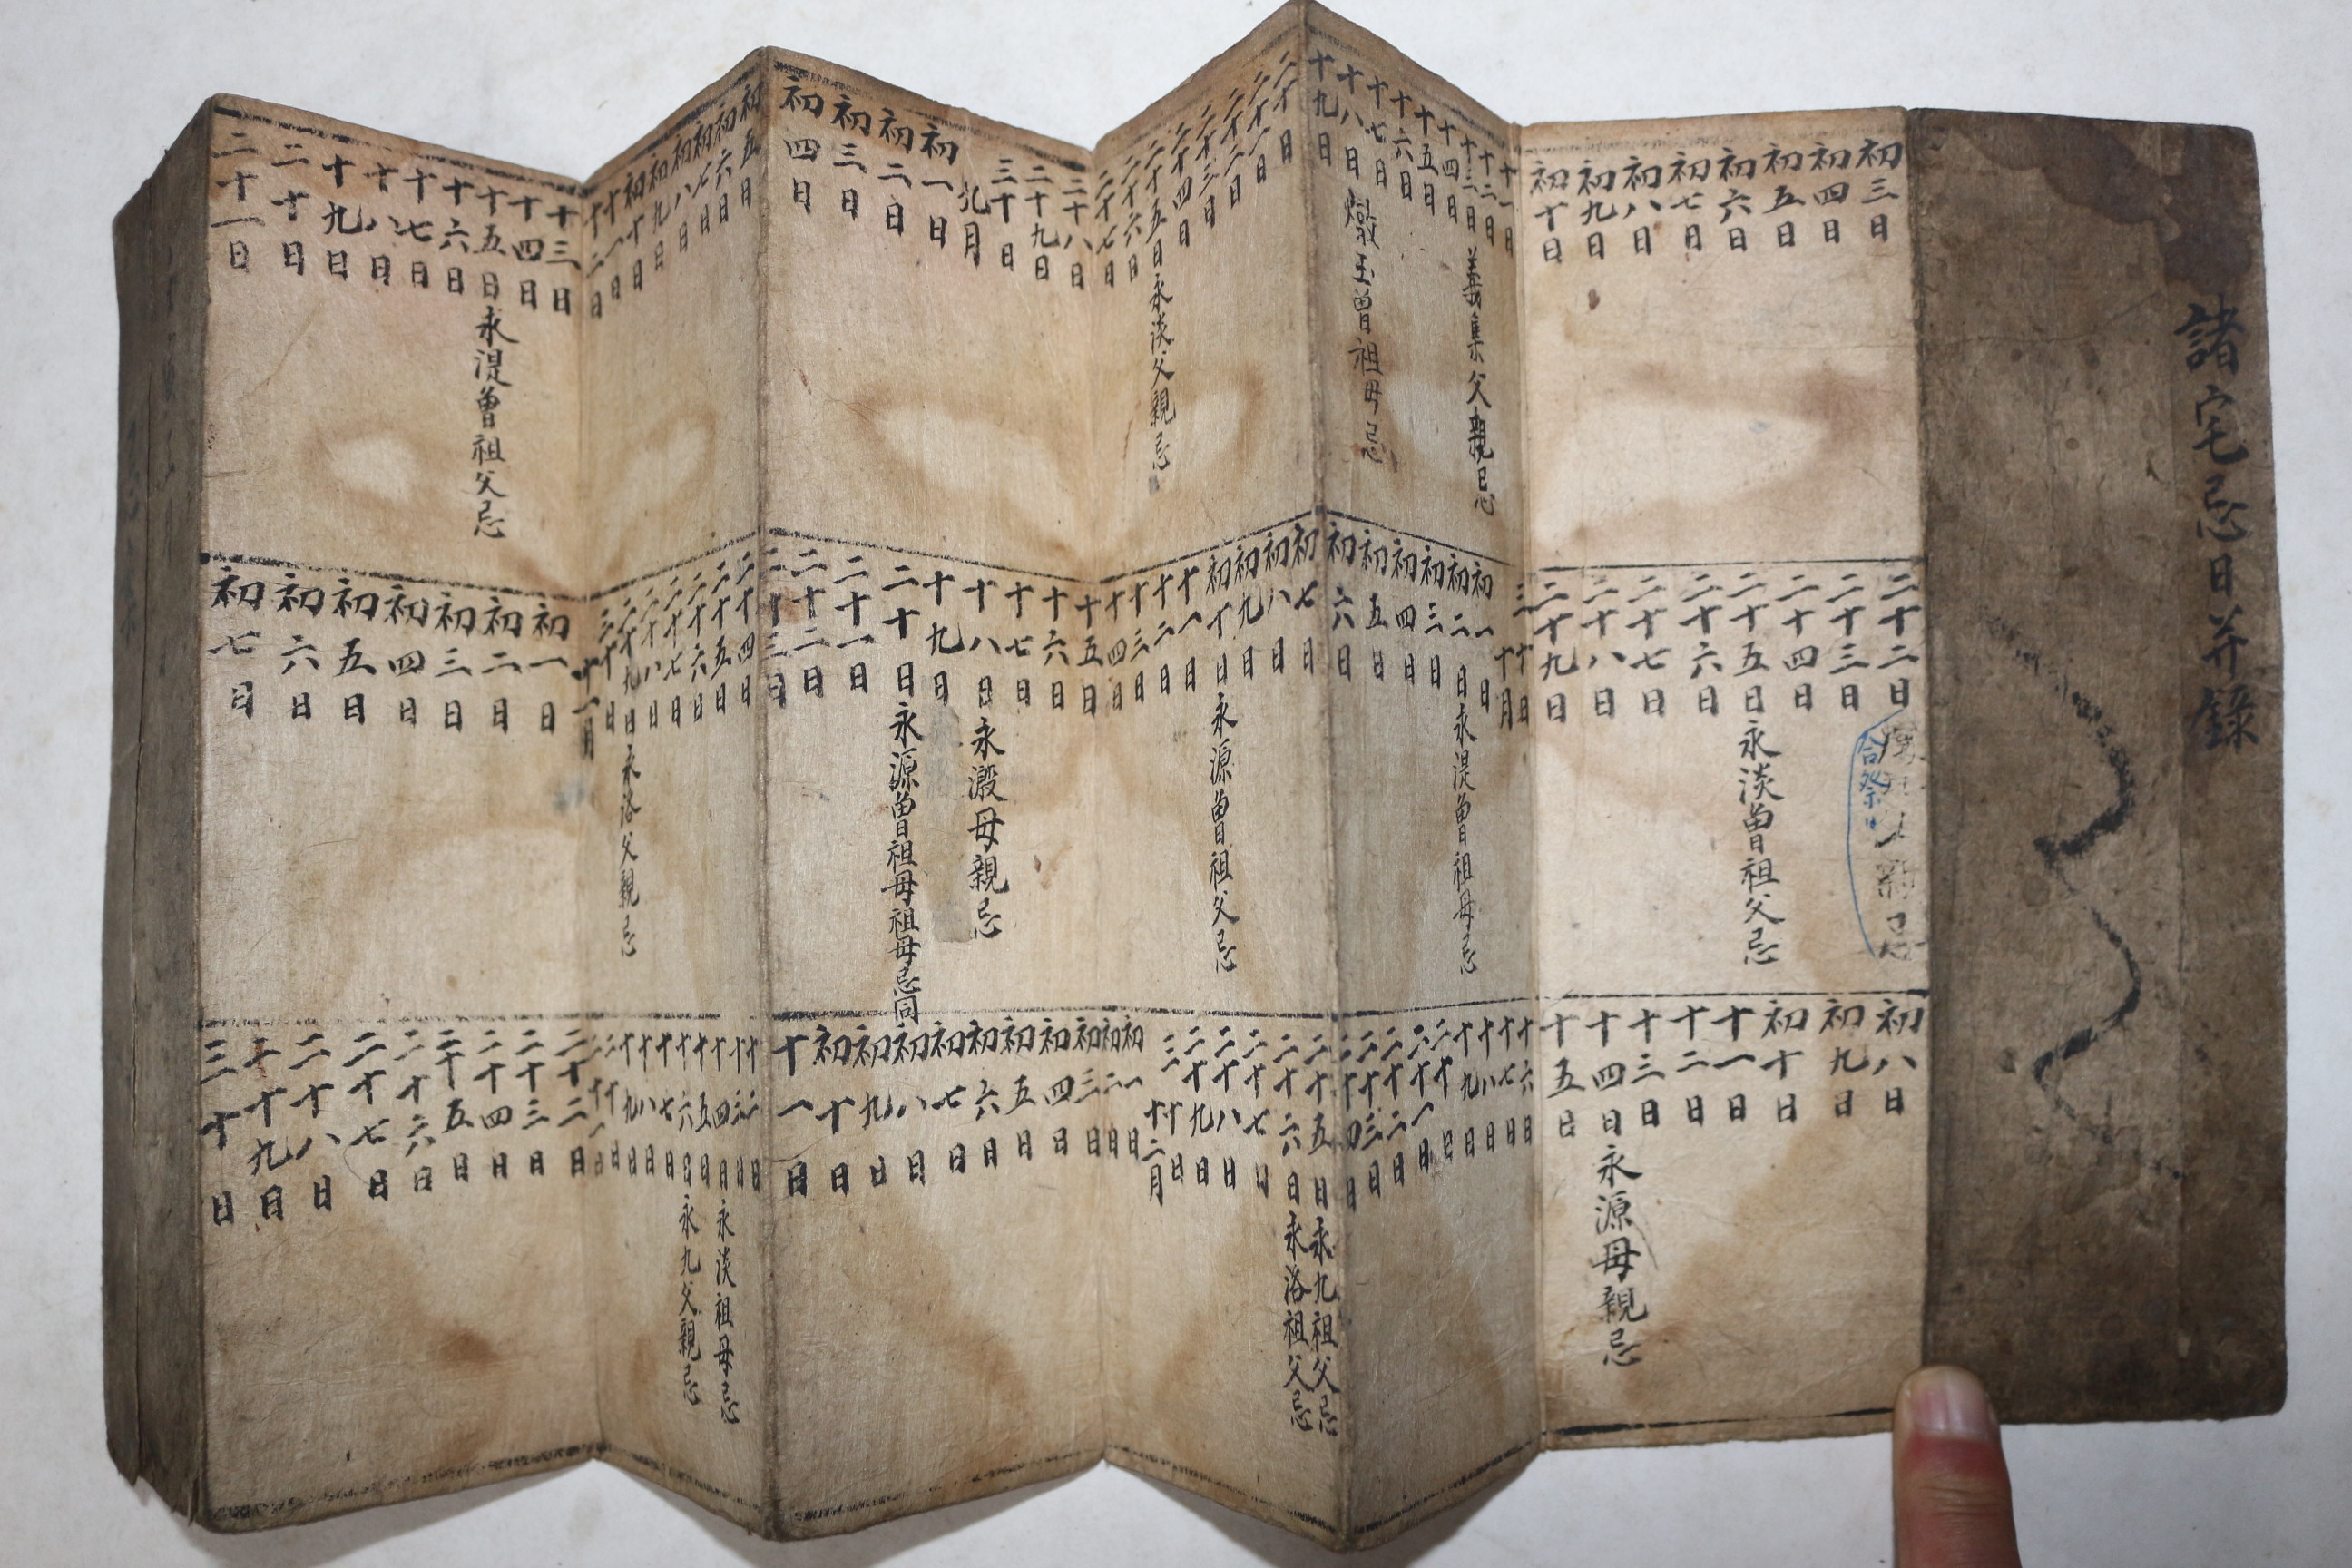 諸宅忌日并錄
初三日
初四日
初五日
初六日
初七日
初八日
初九日
初十日
十一日
十二日
十三日義集父親忌
十四日
十五日
十六日
十七日
十八日 玉曾祖母忌
十九日
二十日
二十一日
二十二日
二十三日
二十四日
二十五日永淡父親忌
二十六日
二十七日
二十八日
二十九日
三十日
九月
初一日
初二日
初三日
初四日
初五日
初六日
初七日
初八日
初九日
初十日
十一日
十二日
十三日
十四日
十五日永湜曾祖父忌
十六日
十七日
十八日
十九日
二十日
二十一日
二十二日 忌
合祭
二十三日
二十四日
二十五日永淡曾祖父忌
二十六日
二十七日
二十八日
二十九日
三十日
十月
初一日
初二日永湜曾祖母忌
初三日
初四日
初五日
初六日
初七日
初八日
初九日
初十日永源曾祖父忌
十一日
十二日
十三日
十四日
十五日
十六日
十七日
十八日永 母親忌
十九日
二十日永源曾祖母祖母忌同
二十一日
二十二日
二十三日
二十四日
二十五日
二十六日
二十七日
二十八日
二十九日永洛父親忌
三十日
十一月
初一日
初二日
初三日
初四日
初五日
初六日
初七日
初八日
初九日
初十日
十一日
十二日
十三日
十四日永源母親忌
十五日
十六日
十七日
十八日
十九日
二十日
二十一日
二十二日
二十三日
二十四日
二十五日永九祖父忌
二十六日永洛祖父忌
二十七日
二十八日
二十九日
三十日
十二月
初一日
初二日
初三日
初四日
初五日
初六日
初七日
初八日
初九日
初十日
十一日
十二日
十三日
十四日永淡祖母忌
十五日
十六日永九父親忌
十七日
十八日
十九日
二十日
二十一日
二十二日
二十三日
二十四日
二十五日
二十六日
二十七日
二十八日
二十九日
三十日